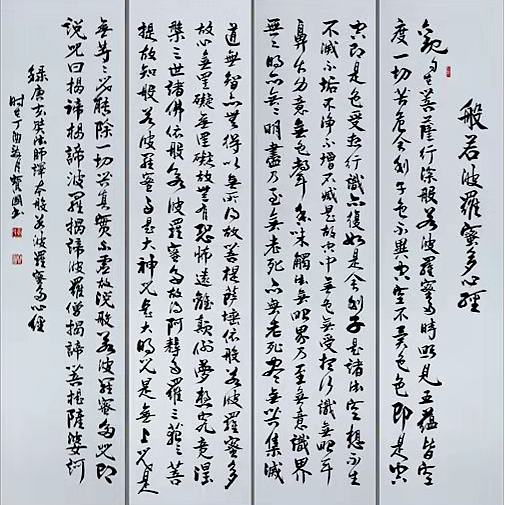 般若波羅蜜多心經
觀自在菩薩行深般若波羅蜜多時照見五蘊皆空
度一切苦厄舍利子色不異空空不異色色即是空
空即是色受想行識亦復如是舍利子是諸法空想不生
不滅不垢不淨不增不減是故空中無色無受想行識無眼耳
鼻舌身意無色聲香味觸法無眼界乃至無意識界
無々明亦無々明盡乃至無老死亦無老死盡無苦集滅
道無智亦無得以無所得故菩提薩埵依般若波羅蜜多
故心無罣礙無罣礙故無有恐怖遠離顛倒夢想究竟涅
槃三世諸佛依般若波羅蜜多故得阿耨多羅三藐三菩
提故知般若波羅蜜多是大神咒是大明咒是無上咒是
無等々咒能除一切苦真實不虛故說般若波羅蜜多咒即
說咒曰揭諦揭諦波羅揭諦波羅僧揭諦菩提薩婆訶
錄唐玄奘法師譯本般若波羅蜜多心經
時在丁酉秋月寶國書